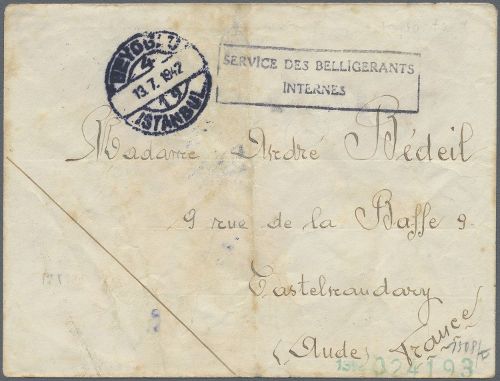 BEYOĞLU
4
13.7.1942
19
ISTANBUL
SERVICE DES BELLIGERANTS
INTERNES
Madame Andre Bédeil
9 rue de la Baffe 9
Castelnaudary
(Aude) France
024193